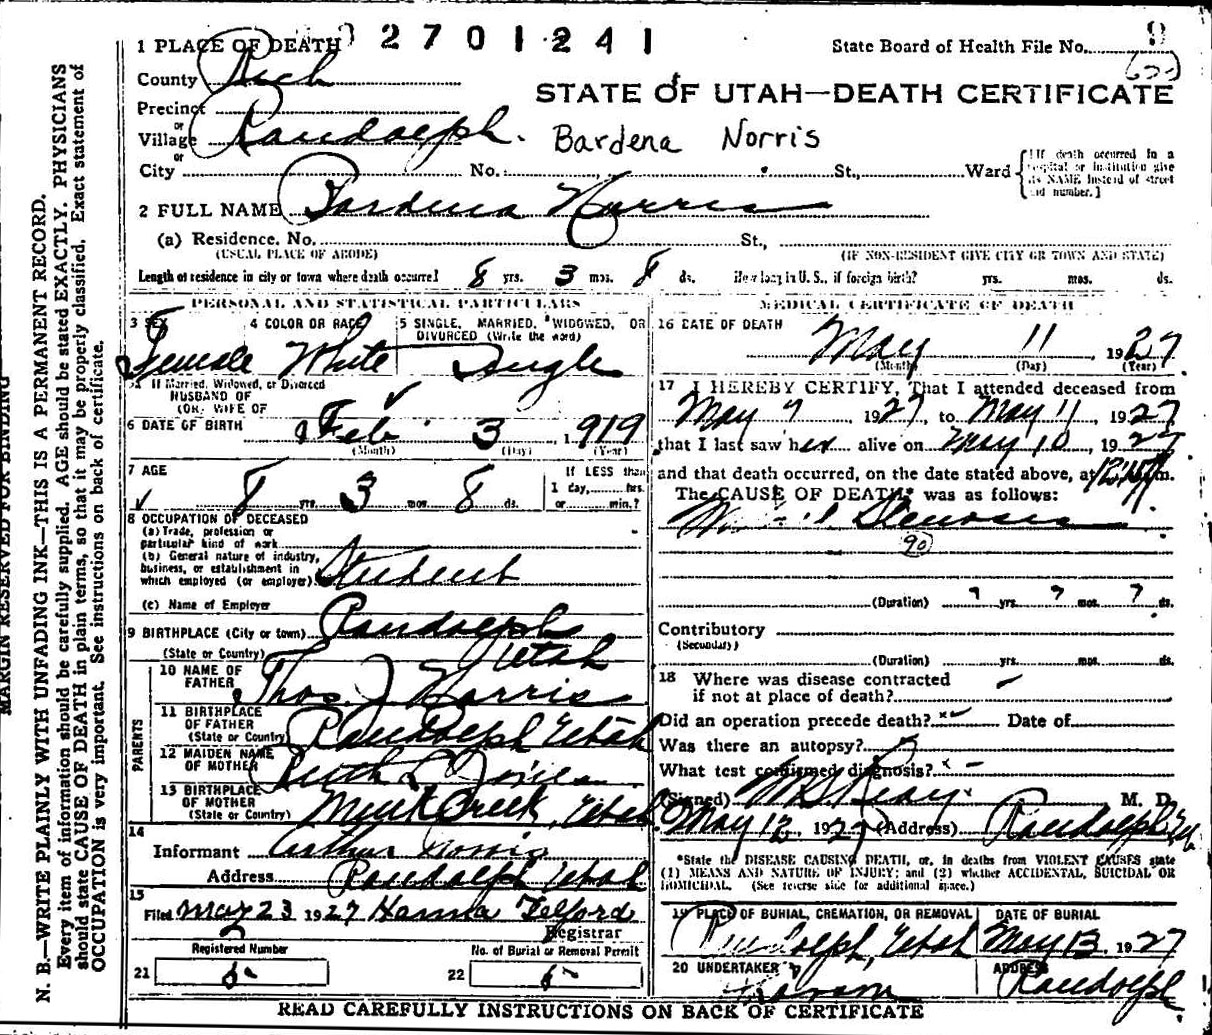 1 PLACE OF DEATH 2701241
State Board of Health File No. 9
County Rich
STATE OF UTAH—DEATH CERTIFICATE
Precinct
or
Village Randolph.
Bardena Norris
or
City No. St., Ward
[If death occurred in a hospital or institution give its NAME instead of street and number.]
2 FULL NAME Bardena Norris
(a) Residence. No. St.,
(USUAL PLACE OF ABODE) (IF NON-RESIDENT GIVE CITY OR TOWN AND STATE)
Length of residence in city or town where death occurred 8 yrs. 3 mos. 8 ds. How long in U. S., if foreign birth? yrs. mos. ds.
PERSONAL AND STATISTICAL PARTICULARS
3 SEX 4 COLOR OR RACE 5 SINGLE, MARRIED, WIDOWED, OR DIVORCED (Write the word)
Female White Single
5a If Married, Widowed, or Divorced
HUSBAND OF
(OR) WIFE OF
6 DATE OF BIRTH Feb 3, 1919
(Month) (Day) (Year)
7 AGE
If LESS than
1 day, hrs.
or min.?
8 yrs. 3 mos 8 ds.
8 OCCUPATION OF DECEASED
(a) Trade, profession or
particular kind of work
(b) General nature of industry,
business, or establishment in
which employed (or employer) Student
(c) Name of Employer
9 BIRTHPLACE (City or town) Randolph
(State or Country) Utah
PARENTS
10 NAME OF
FATHER Thos. J Norris
11 BIRTHPLACE
OF FATHER
(State or Country) Randolph Utah
12 MAIDEN NAME
OF MOTHER Ruth L Jones
13 BIRTHPLACE
OF MOTHER
(State or Country) Creek, Utah
14
Informant Arthur Norris
Address Randolph Utah
15
Filed May 23 1927 Hanna Telford
Registrar
Registered Number No. of Burial or Removal Permit
21 22
MEDICAL CERTIFICATE OF DEATH
16 DATE OF DEATH
May 11, 1927
(Month) (Day) (Year)
17 I HEREBY CERTIFY, That I attended deceased from
May 7 1927, to May 11, 1927
that I last saw her alive on May 10, 1927
and that death occurred, on the date stated above, at m.
The CAUSE OF DEATH* was as follows:
Stenosis
90
(Duration) ? yrs. ? mos. ? ds.
Contributory
(Secondary)
(Duration) yrs. mos. ds.
18 Where was disease contracted
if not at place of death?
Did an operation precede death? Date of
Was there an autopsy?
What test confirmed diagnosis?
(Signed) M. D.
May 12, 1927 (Address) Randolph
*State the DISEASE CAUSING DEATH, or, in deaths from VIOLENT CAUSES state
(1) MEANS AND NATURE OF INJURY; and (2) whether ACCIDENTAL, SUICIDAL OR
HOMICIDAL. (See reverse side for additional space.)
19 PLACE OF BURIAL, CREMATION, OR REMOVAL DATE OF BURIAL
Randolph, Utah May 13, 1927
20 UNDERTAKER ADDRESS
Randolph
READ CAREFULLY INSTRUCTIONS ON BACK OF CERTIFICATE
MARGIN RESERVED FOR BINDING
N. B.—WRITE PLAINLY WITH UNFADING INK—THIS IS A PERMANENT RECORD.
Every item of information should be carefully supplied. AGE should be stated EXACTLY. PHYSICIANS
should state CAUSE OF DEATH in plain terms, so that it may be properly classified. Exact statement of
OCCUPATION is very important. See instructions on back of certificate.